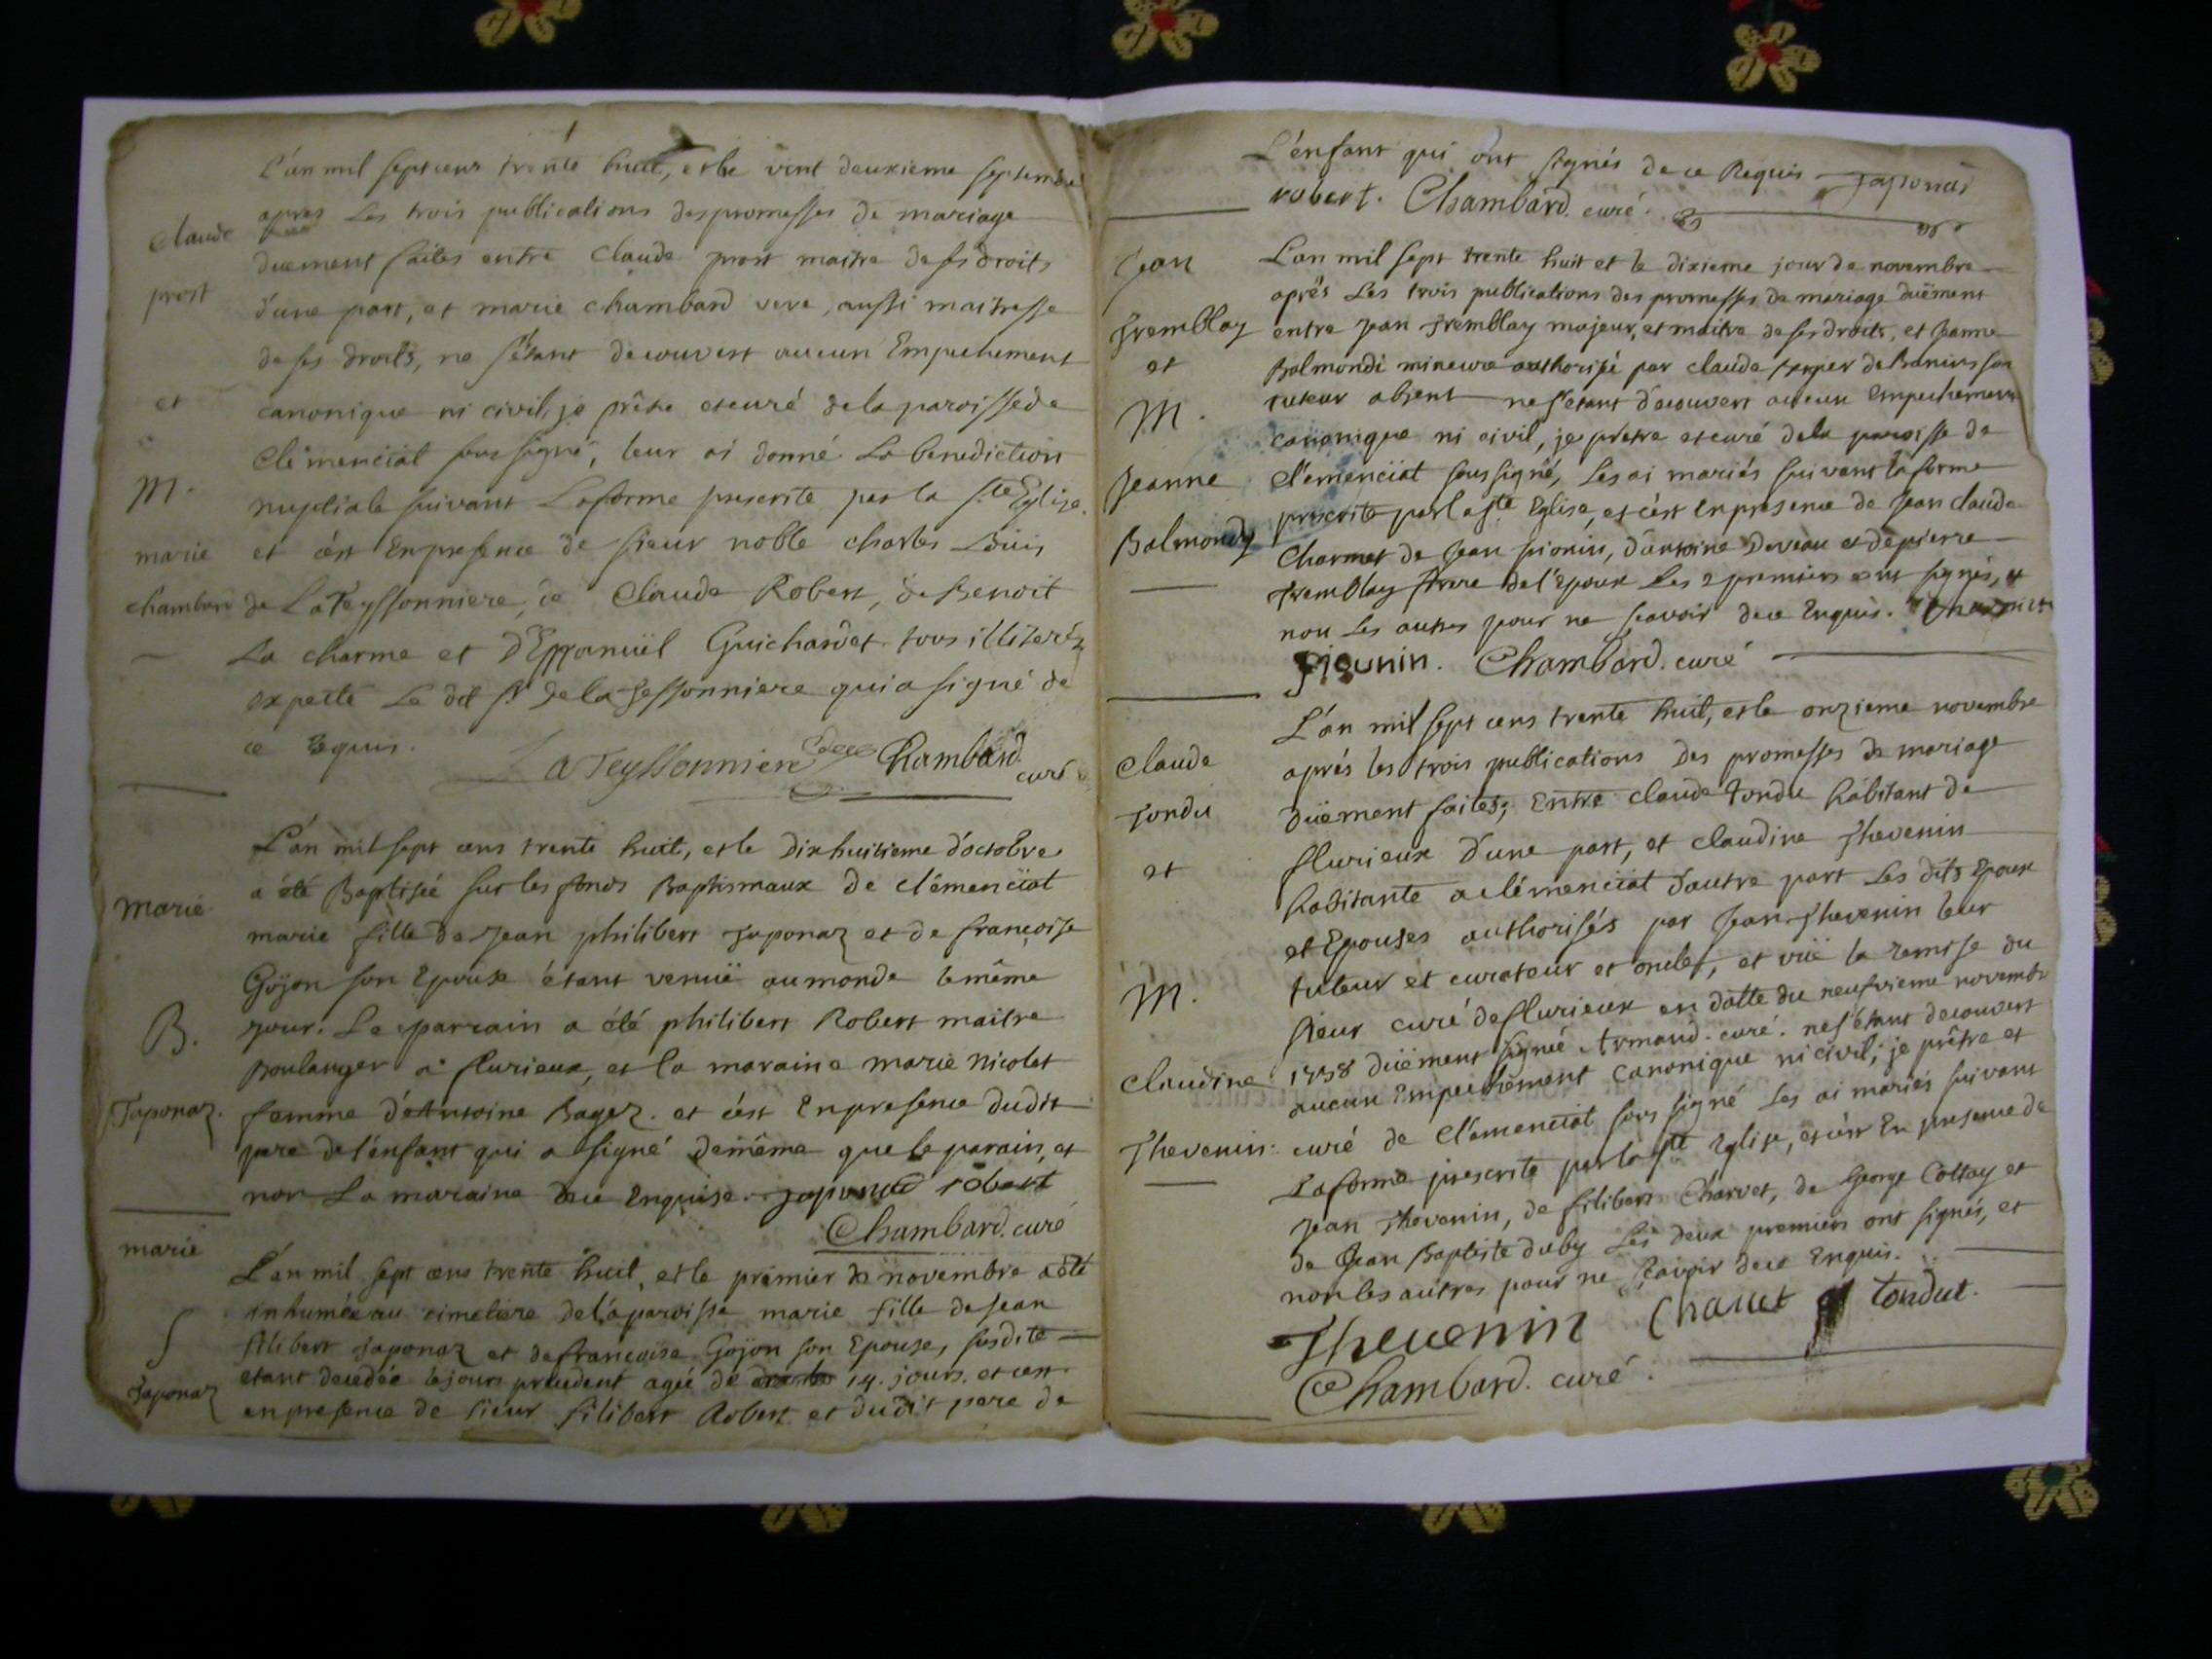 L'an mil sept cens trente huit, et le vint deuxieme septembre
apres Les trois publications des promesses de mariage
Claude
duement faites entre Claude prost maitre de ses droits
prost
d'une part, et marie chambard veve, aussi maitresse
de ses droits, ne s'étant decouvert aucun Empechement
et
canonique ni civil, je prêtre et curé de la paroisse de
Clémenciat sous signé, leur ai donné La benediction
M.
nuptiale suivant La forme prescrite par la Ste Eglise.
marie
et c'est En presence de sieur noble charles Louis
chambard
de La Teyssonniere, de Claude Robert, de Benoit
La charme et d'Emanuël Guichardet tous illiterés
expecté Le dit Sr de la Tessonniere qui a signé de
ce Requis.
La Teyssonniere Chambard. curé
L'an mil sept cens trente huit, et le Dixhuitieme d'octobre
marie
a été Baptisée sur les fonds Baptismaux de clémenciat
marie fille de Jean philibert Taponaz et de françoise
Gojon son Epouse étant venuë au monde le même
B.
jour. Le parrain a été philibert Robert maitre
Boulanger à flurieux, et la maraine marie Nicolet
Taponaz.
femme d'Antoine Bagez. et c'est En presence dudit
pere de l'enfant qui a signé de même que le parain, et
non La maraine de ce Enquise. Taponaz robert
Chambard. curé
marie
L'an mil sept cens trente huit, et le premier de novembre a été
inhumée au cimetiere de la paroisse marie fille de Jean
S
filibert Taponaz et de françoise Gojon son Epouse, susdite
étant decedée le jour precedent agée de 14. jours. et c'est
Taponaz
en presence de sieur filibert Robert et dudit pere de
L'enfant qui ont signés de ce Requis Taponaz
robert. Chambard. curé.
Jean
L'an mil sept trente huit et le dixieme jour de novembre
aprés Les trois publications des promesses de mariage duëment
Tremblay
entre Jean Tremblay majeur, et maitre de ses droits, et Jeanne
et
Balmondi mineure authorisé par claude de son
tuteur absent ne s'étant découvert aucun Empechement
M.
canonique ni civil, je prêtre et curé de la paroisse de
Jeanne
Clémenciat sous signé, Les ai mariés suivant la forme
prescrite par la Ste Eglise, et c'est En presence de Jean claude
Balmondy
Charmet de Jean pionin, d'antoine Deveau et de pierre
Tremblay frere de l'Epoux Les 2 premiers ont signés, et
non Les autres pour ne sçavoir de ce Enquis.
pionin. Chambard. curé
L'an mil sept cens trente huit, et le onzieme novembre
Claude
aprés les trois publications Des promesses de mariage
Tondu
Duëment faites; Entre claude Tondu habitant de
flurieux d'une part, et claudine Thevenin
et
habitante a clémenciat d'autre part Les dits Epoux
et Epouses authorisés par Jean Thevenin leur
tuteur et curateur et oncle, et vuë la remise du
M.
sieur curé de flurieux en datte du neufvieme novembre
1738 duëment signée Armand. curé. ne s'étant decouvert
Claudine
aucun Empechement canonique ni civil; je prêtre et
curé de Clémenciat sous signé Les ai mariés suivant
Thevenin.
La forme prescrite par la Ste Eglise, et c'est En presence de
Jean Thevenin, de filibert Charvet, de George Cottay et
de Jean Baptiste duby Les deux premiers ont signés, et
non les autres pour ne sçavoir de ce Enquis.
Thevenin Tondut.
Chambard. curé.